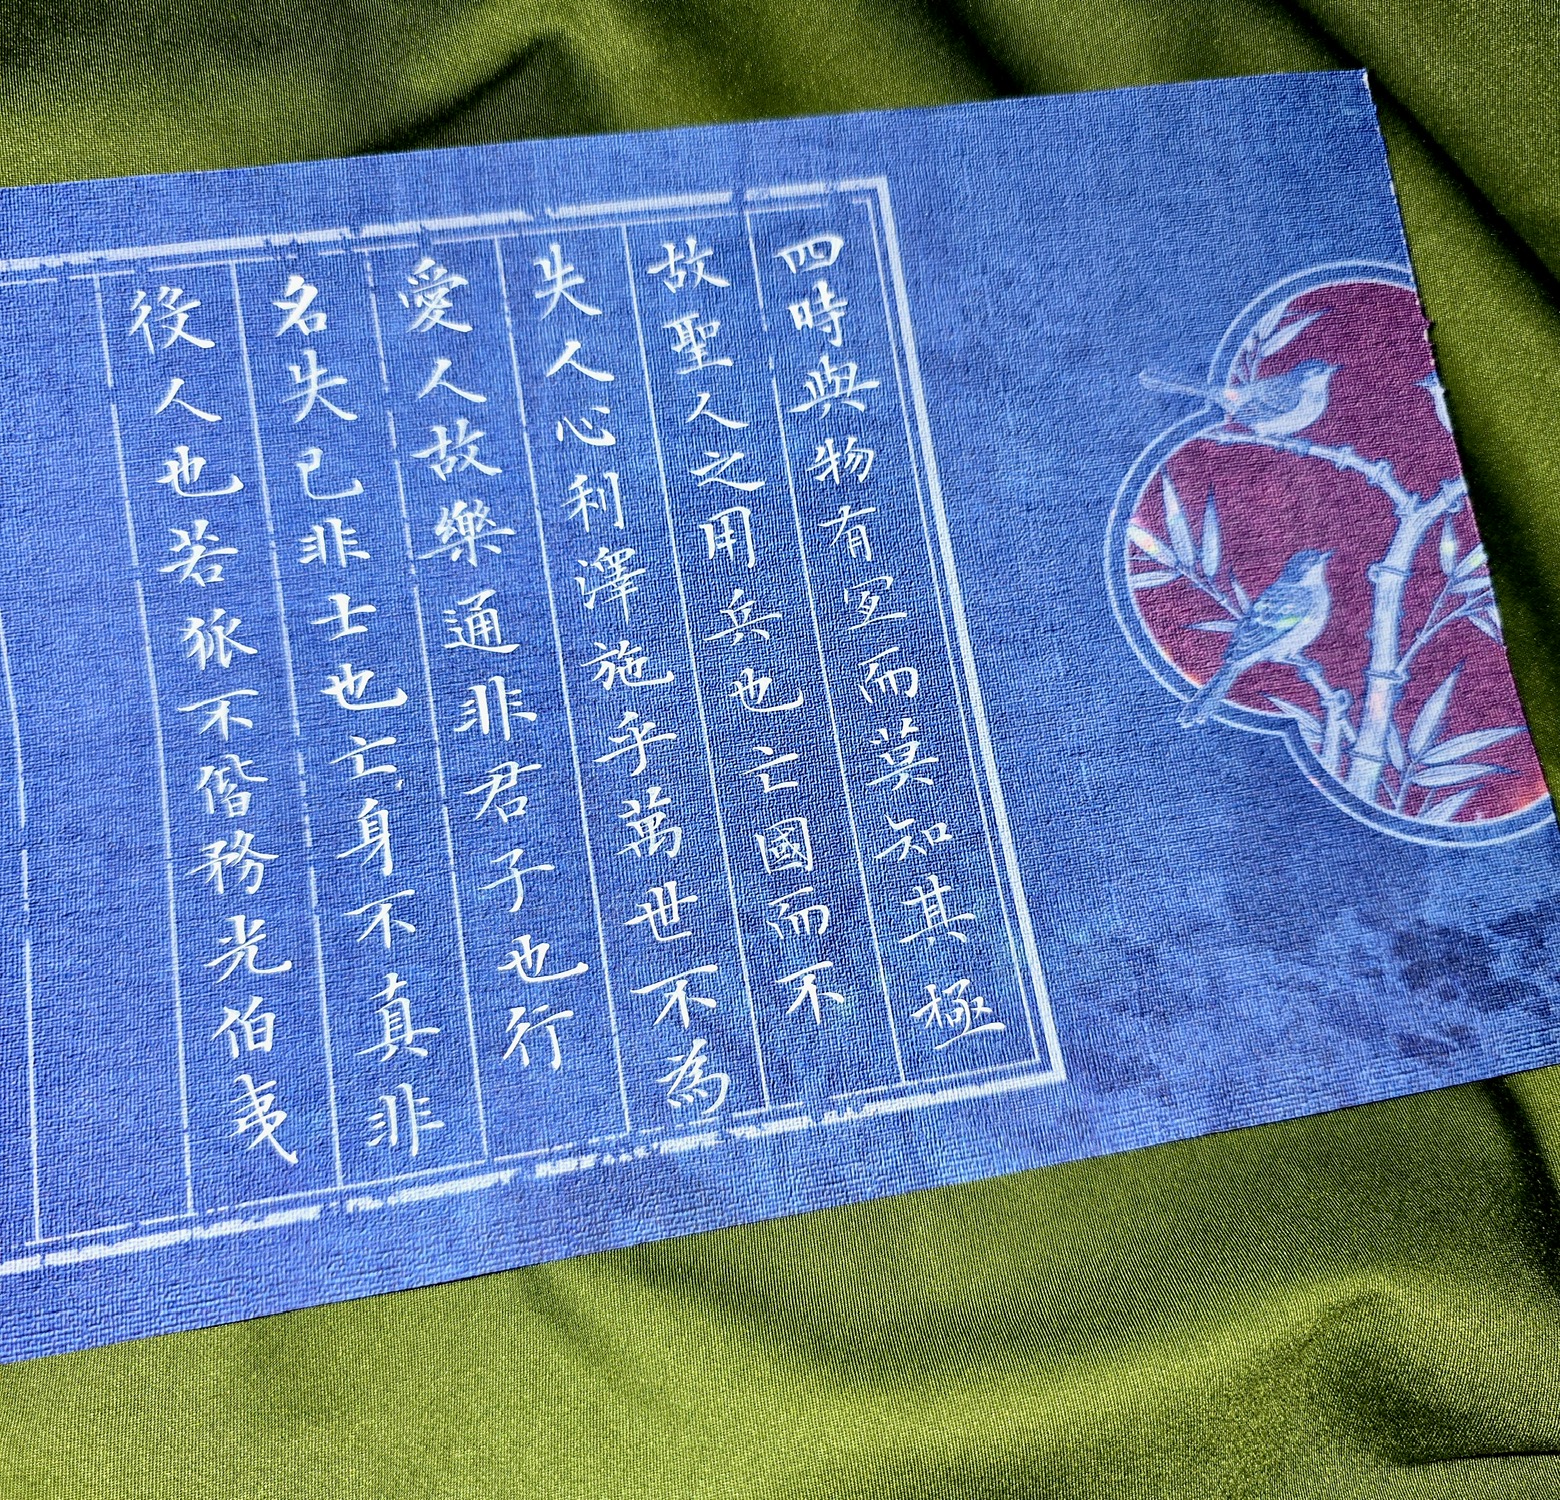 四時與物有宜而莫知其極
故聖人之用兵也亡國而不
失人心利澤施乎萬世不為
愛人故樂通非君子也行
名失己非士也亡身不真非
役人也若狐不偕務光伯夷